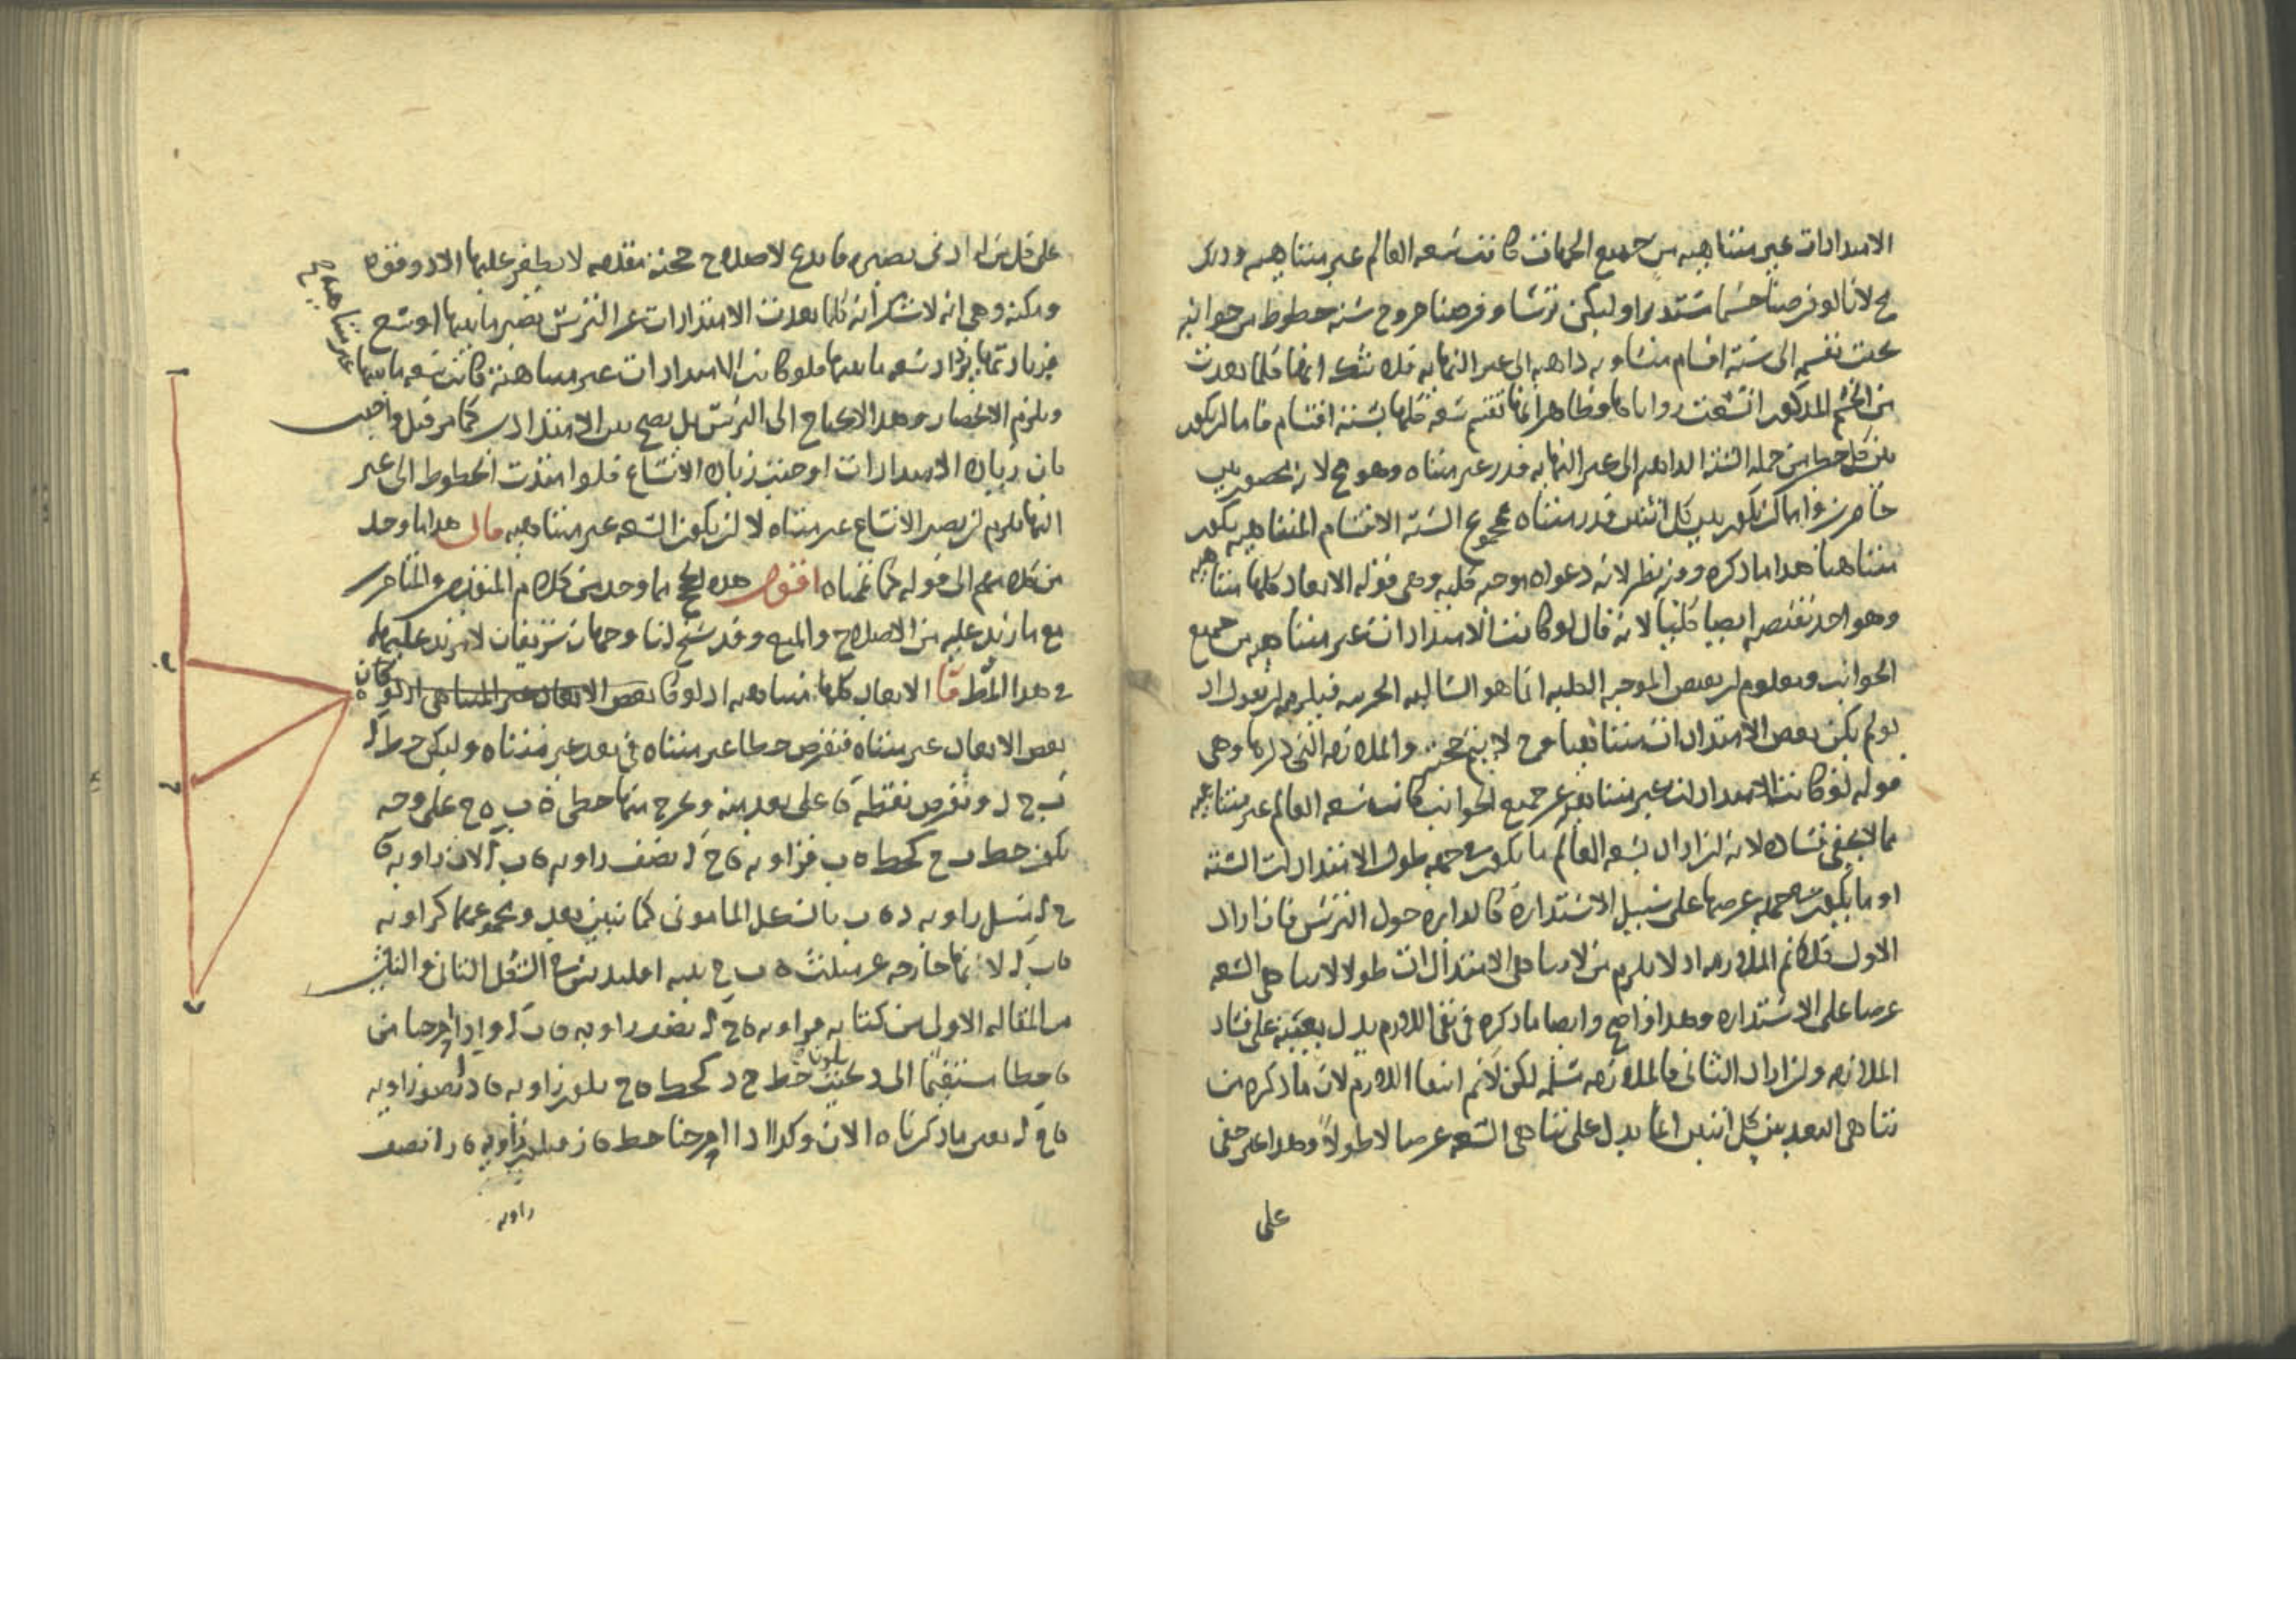 الامتدادات غير متناهيه من جميع الجهات كانت سعه العالم غير متناهيه وذلك
مح لانا لو فرضنا جسما مستديرا وليكن ترسا وفرضنا خروج سته خطوط من جوانبه
بحيث تقسمه الى سته اقسام متساويه ذاهبه الى غير النهايه فلا شك انها كلما بعدت
من الجسم المذكور اتسعت زواياها وظاهر انها تقسم سعه كلها بسته اقسام فاما ان يكون
بين كل خطين من جمله السته الذاهبه الى غير النهايه قدر غير متناه وهو مح لانه محصور بين
حاصرين واما ان يكون بين كل اثنين قدر متناه فمجموع السته الاقسام المتناهيه يكون
متناهيا هذا ما ذكره وفيه نظر لانه دعواه موجبه كليه وهى قوله الابعاد كلها متناهيه
وهو اخذ نقيضه ايضا كليا لانه قال لو كانت الامتدادات غير متناهيه من جميع
الجوانب ومعلوم ان نقيض الموجبه الكليه انما هو السالبه الجزييه فيلزمه ان يقول اذ
لو لم يكن بعض الامتدادات متناهيا وح لا يتم حجته والملازمه التى ذكرها وهى
قوله لو كانت الامتدادات غير متناهيه عن جميع الجوانب كانت سعه العالم غير متناهيه
مما لا يخفى فساده لانه ان اراد بسعه العالم ما يكون من جهه طول الامتدادات السته
او ما يكون من جهه عرضها على سبيل الاستداره كالدايره حول الترس فان اراد
الاول فلا نم الملازمه اذ لا يلزم من لا تناهى الامتدادات طولا لا تناهى السعه
عرضا على الاستداره وهذا واضح وايضا ما ذكره فى نفى اللازم يدل بعينه على فساد
الملازمه وان اراد الثانى فالملازمه مسلمه لكن لا نم انتفا اللازم لان ما ذكره من
تناهى البعد بين كل اثنين انما يدل على تناهى السعه عرضا لا طولا وهذا غير خفى
على
على كل من له ادنى بصيره فا بدع لاصلاح حجته مقدمه لا يظفر عليها الا ذو قوه
ومكنه وهى انه لا شك انه كلما بعدت الامتدادات عن الترس يصير ما بينها اوسع
فبزيادتها يزداد سعه ما بينها فلو كانت الامتدادات غير متناهيه كانت سعه ما بينها غير متناهيه
ويلزم الانحصار وهذا لا يحتاج الى الترس بل يصح بين الامتدادين كما مر قبل واجيب
بان زياده الامتدادات اوجبت زياده الاتساع فلو امتدت الخطوط الى غير
النهايه يلزم ان يصير الاتساع غير متناه لا ان يكون السعه غير متناهيه قال هذا ما وجد
من كلامهم الى قوله كما تمناه اقول هذه الحجج مما وجد من كلام المتقدمين والمتاخرين
مع ما زيد عليه من الاصلاح والمنع وقد سنح لنا وجهان شريفان لا مزيد عليهما
فى هذا المط قا الابعاد كلها متناهيه اذ لو كان بعض الابعاد غير المتناهى اذ لو كان
بعض الابعاد غير متناه فنفرض خطا غير متناه فى بعد غير متناه وليكن خط ا
ب ج د ونفرض نقطه ه على بعد منه ونخرج منها خطى ه ب ه ج على وجه
يكون خط ب ج كخط ه ب فزاويه ه ج ا نصف زاويه ه ب ا لان زاويه ه
ج ا مثل زاويه ج ه ب بالشكل المامونى كما نبين بعد ومجموعهما كزاويه
ه ب ا لانها خارجه عن مثلث ه ب ج بينه اقليدس فى الشكل الثانى والثلثين
من المقاله الاولى من كتابه فزاويه ه ج ا نصف زاويه ه ب ا واذا اخرجنا من
ه خطا مستقيما الى د بحيث يكون خط ج د كخط ه ج يكون زاويه ه د ا نصف زاويه
ه ج ا بعين ما ذكرناه الان وكذا اذا اخرجنا خط ه ز فيكون زاويه ه ز ا نصف
زاويه
ا
ب
ج
د
ه